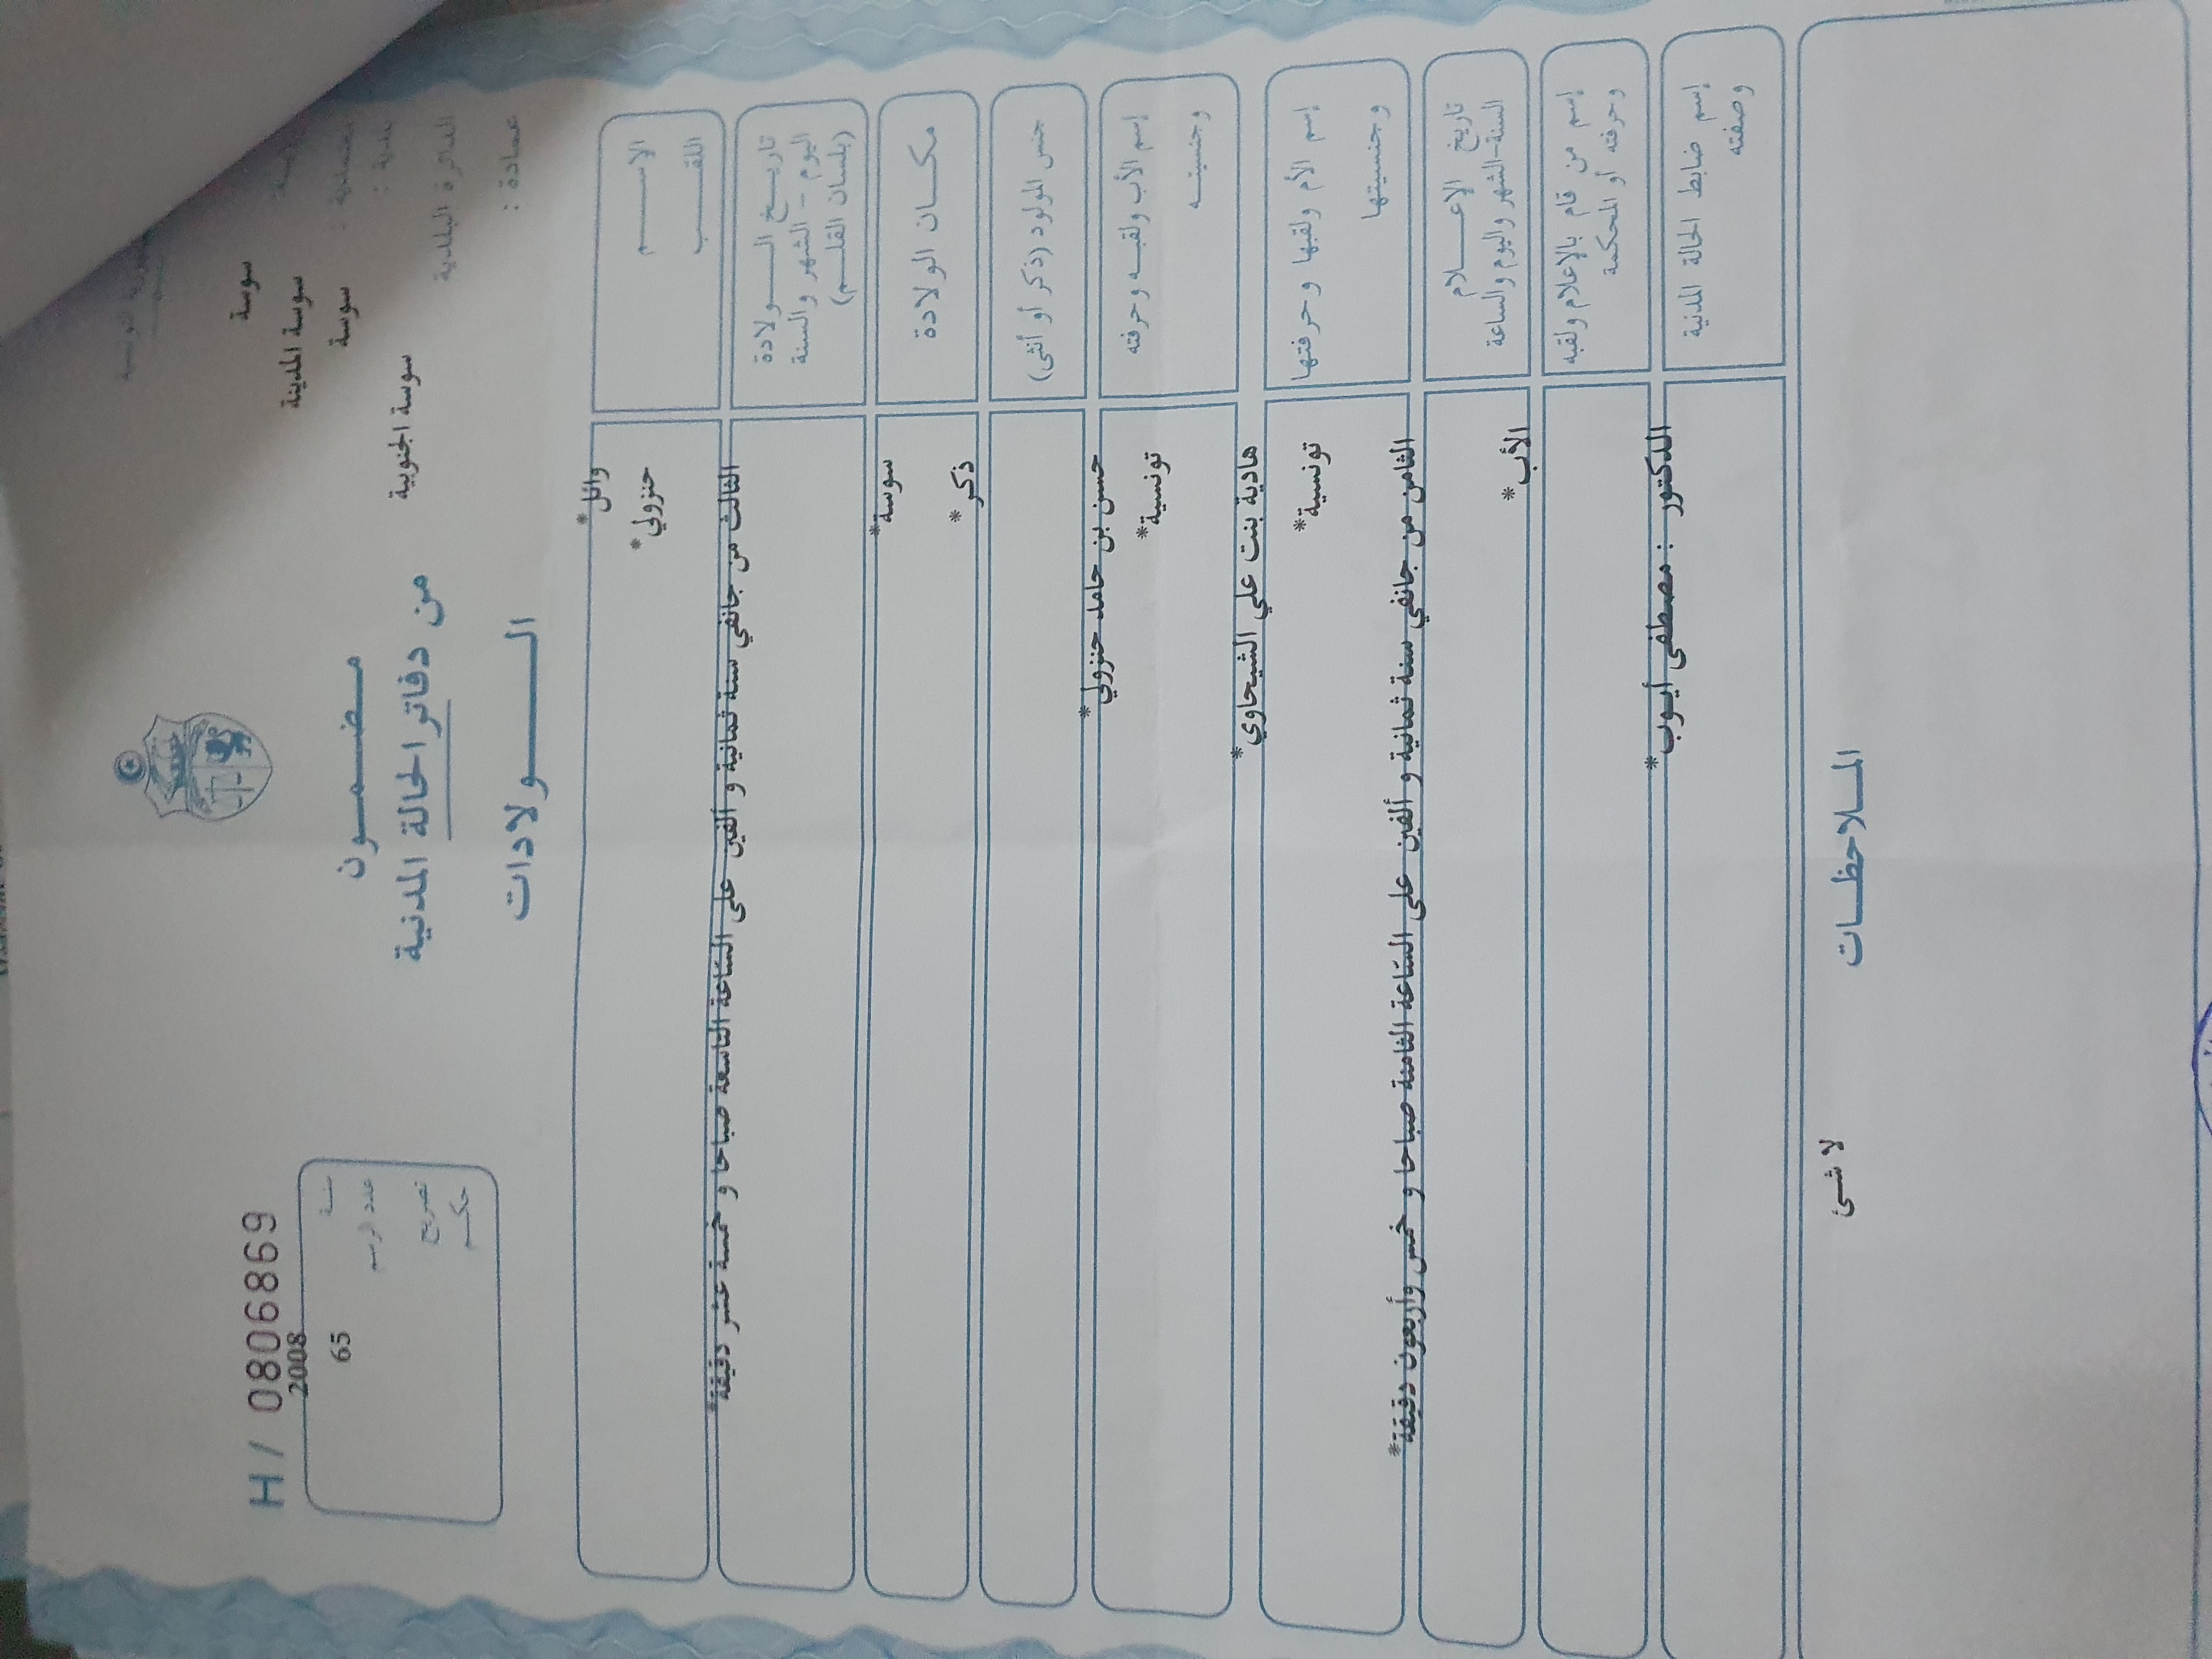 سوسة
سوسة المدينة
سوسة
الدائرة البلدية
سوسة الجنوبية
عمادة :
H/ 0806869
2008
سنة
65
عدد الرسم
تصريح
حكم
مضمون
من دفاتر الحالة المدنية
الولادات
الاسم
وائل*
اللقب
حنزولي*
تاريخ الولادة
اليوم - الشهر والسنة
(بلسان القلم)
الثالث من جانفي سنة ثمانية و ألفين على السّاعة التاسعة صباحا و خمسة عشر دقيقة*
مكان الولادة
سوسة*
جنس المولود (ذكر أو أنثى)
ذكر*
إسم الأب ولقبه وحرفته
حسن بن حامد حنزولي*
وجنسيته
تونسية*
إسم الأم ولقبها وحرفتها
هادية بنت علي الشيحاوي*
وجنسيتها
تونسية*
تاريخ الإعلام
السنة-الشهر واليوم والساعة
الثامن من جانفي سنة ثمانية و ألفين على السّاعة الثامنة صباحا و خمس وأربعون دقيقة*
إسم من قام بالإعلام ولقبه
وحرفته أو المحكمة
الأب*
إسم ضابط الحالة المدنية
وصفته
الدكتور : مصطفى أيوب*
الملاحظات
لا شئ